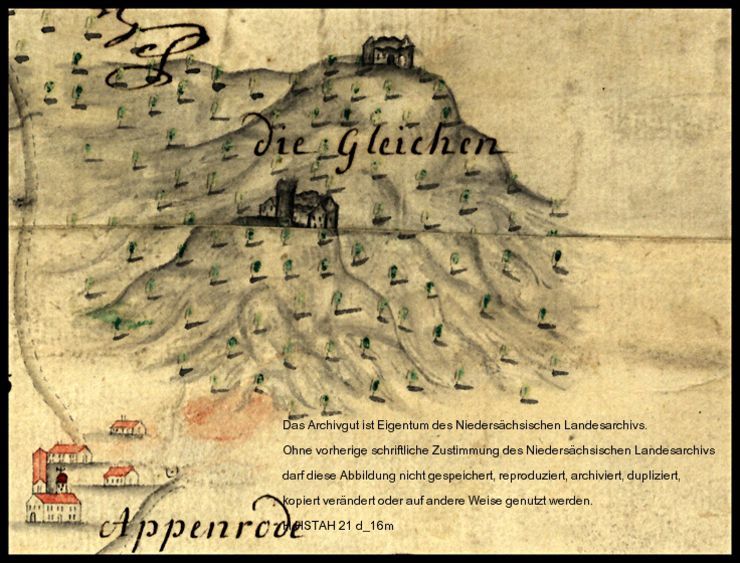 die Gleichen
Das Archivgut ist Eigentum des Niedersächsischen Landesarchivs.
Ohne vorherige schriftliche Zustimmung des Niedersächsischen Landesarchivs
darf diese Abbildung nicht gespeichert, reproduziert, archiviert, dupliziert,
kopiert verändert oder auf andere Weise genutzt werden.
21 d_16m
Appenrode